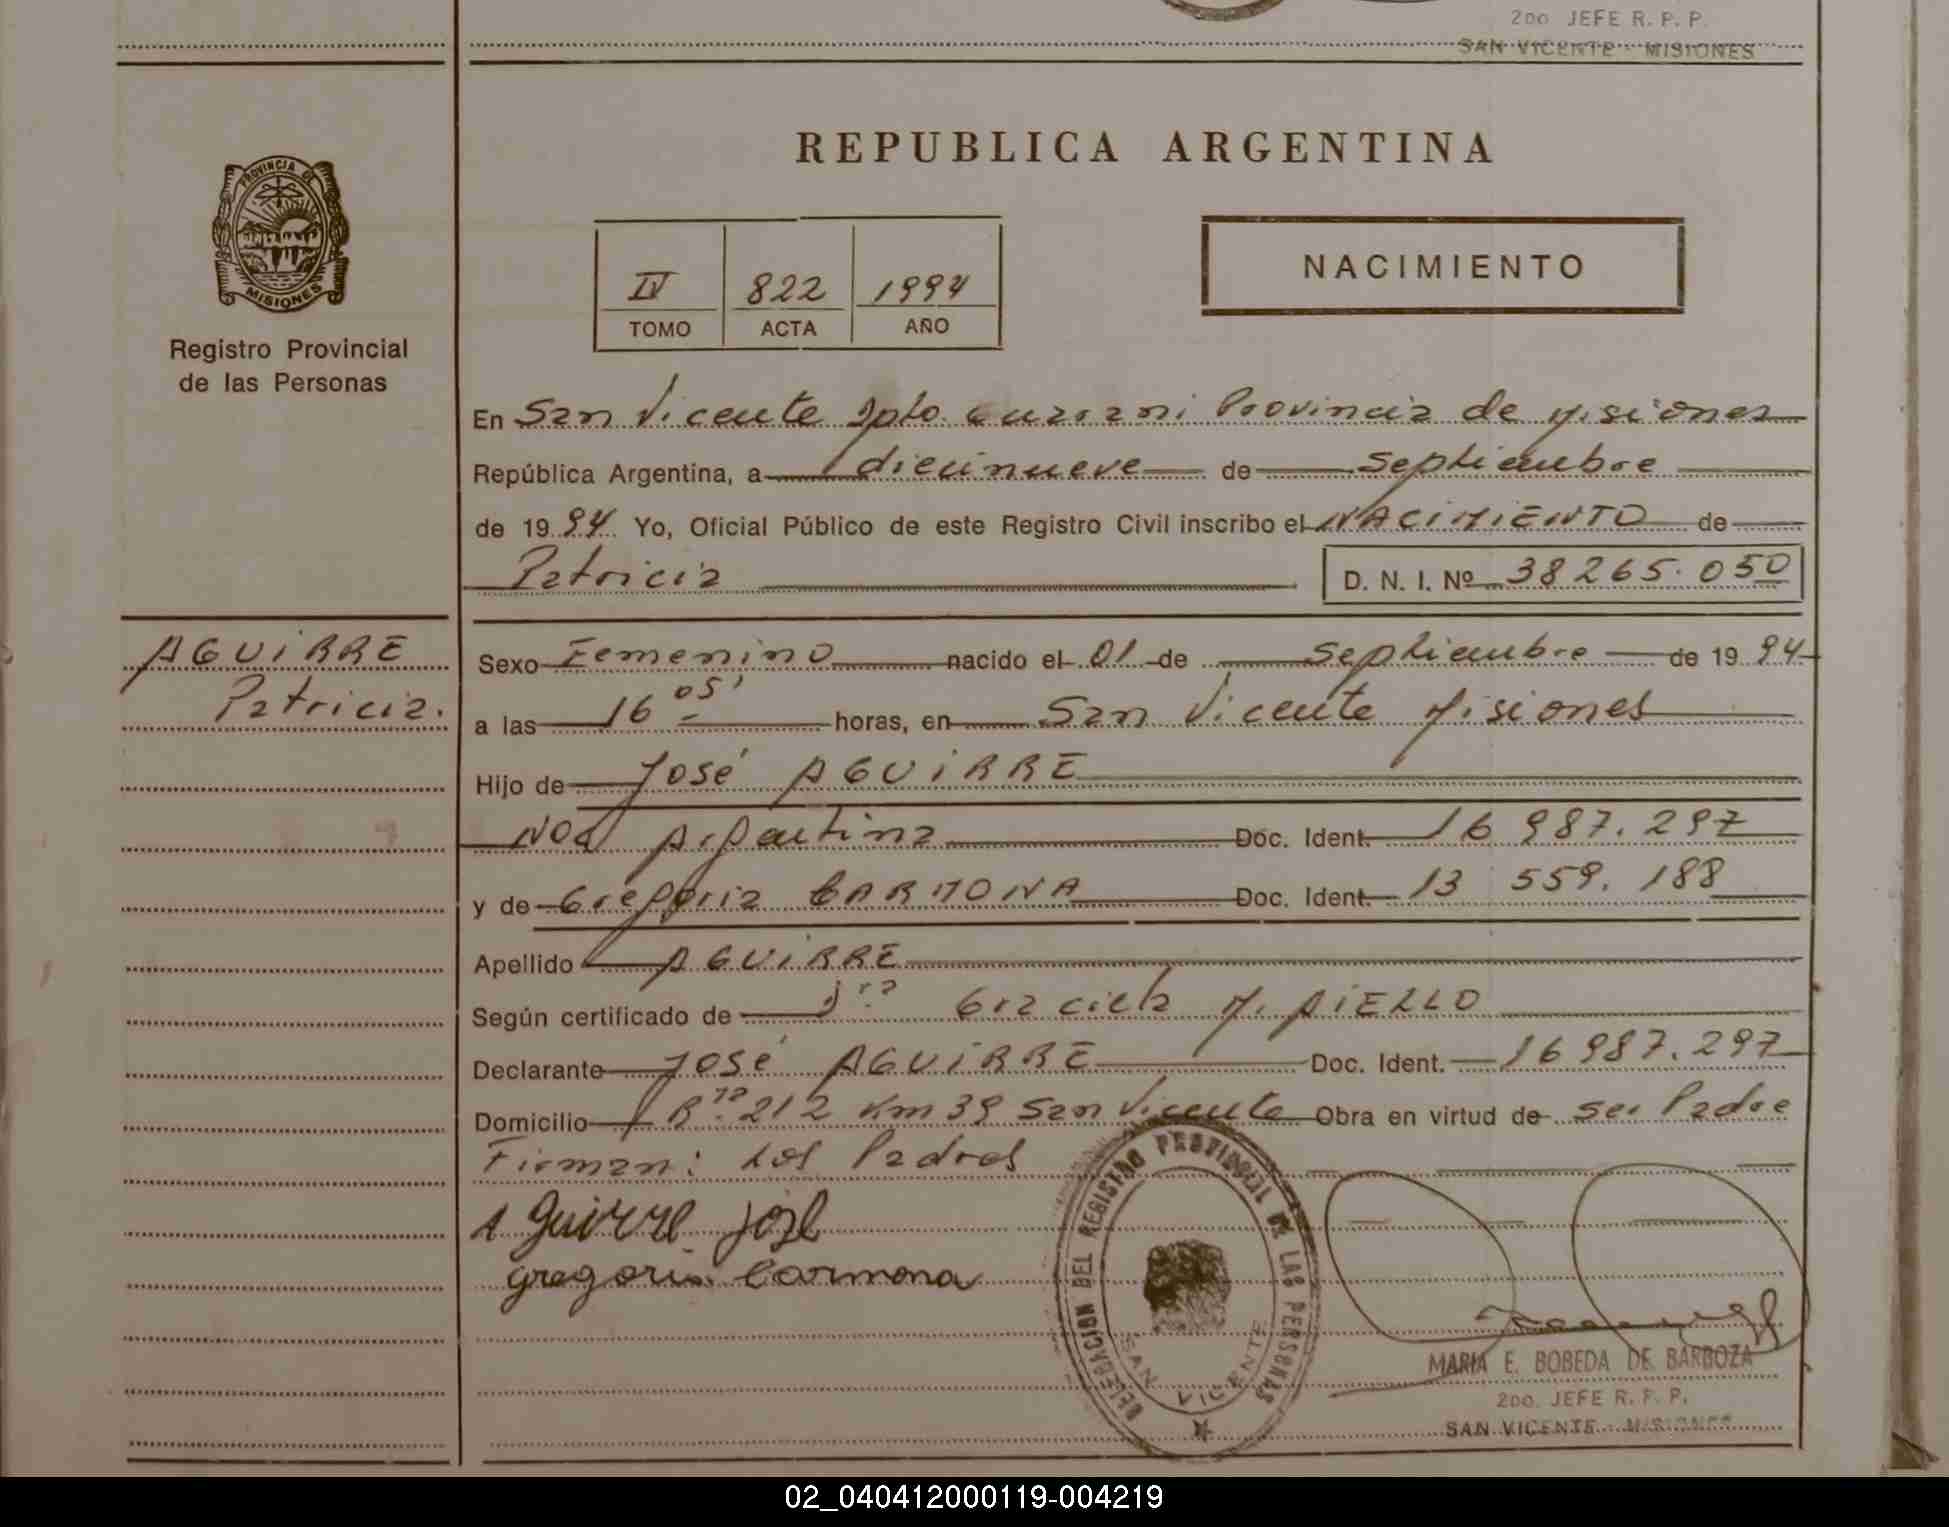 2do. JEFE R. P. P.
SAN VICENTE - MISIONES
REPUBLICA ARGENTINA
PROVINCIA DE
MISIONES
Registro Provincial
de las Personas
IV 822 1994
TOMO ACTA AÑO
NACIMIENTO
En San Vicente Dpto. Guarani Provincia de Misiones
República Argentina, a diecinueve de Septiembre
de 1994 Yo, Oficial Público de este Registro Civil inscribo el NACIMIENTO de
Patricia D. N. I. Nº 38265.050
AGUIRRE
Patricia.
Sexo Femenino nacido el 01 de Septiembre de 1994
a las 16 05' horas, en San Vicente Misiones
Hijo de José AGUIRRE
Argentina Doc. Ident. 16 987.297
y de Gregoria CARMONA Doc. Ident. 13 559.188
Apellido AGUIRRE
Según certificado de Graciela M.
Declarante JOSÉ AGUIRRE Doc. Ident. 16 987.297
Domicilio Rta. 212 Km 39 San Vicente Obra en virtud de ser Padre
Firman: Los Padres
Aguirre José
Gregoria Carmona
DELEGACION DEL REGISTRO PROVINCIAL DE LAS PERSONAS
SAN VICENTE
MARIA E. BOBEDA DE BARBOZA
2do. JEFE R. P. P.
SAN VICENTE - MISIONES
02_040412000119-004219